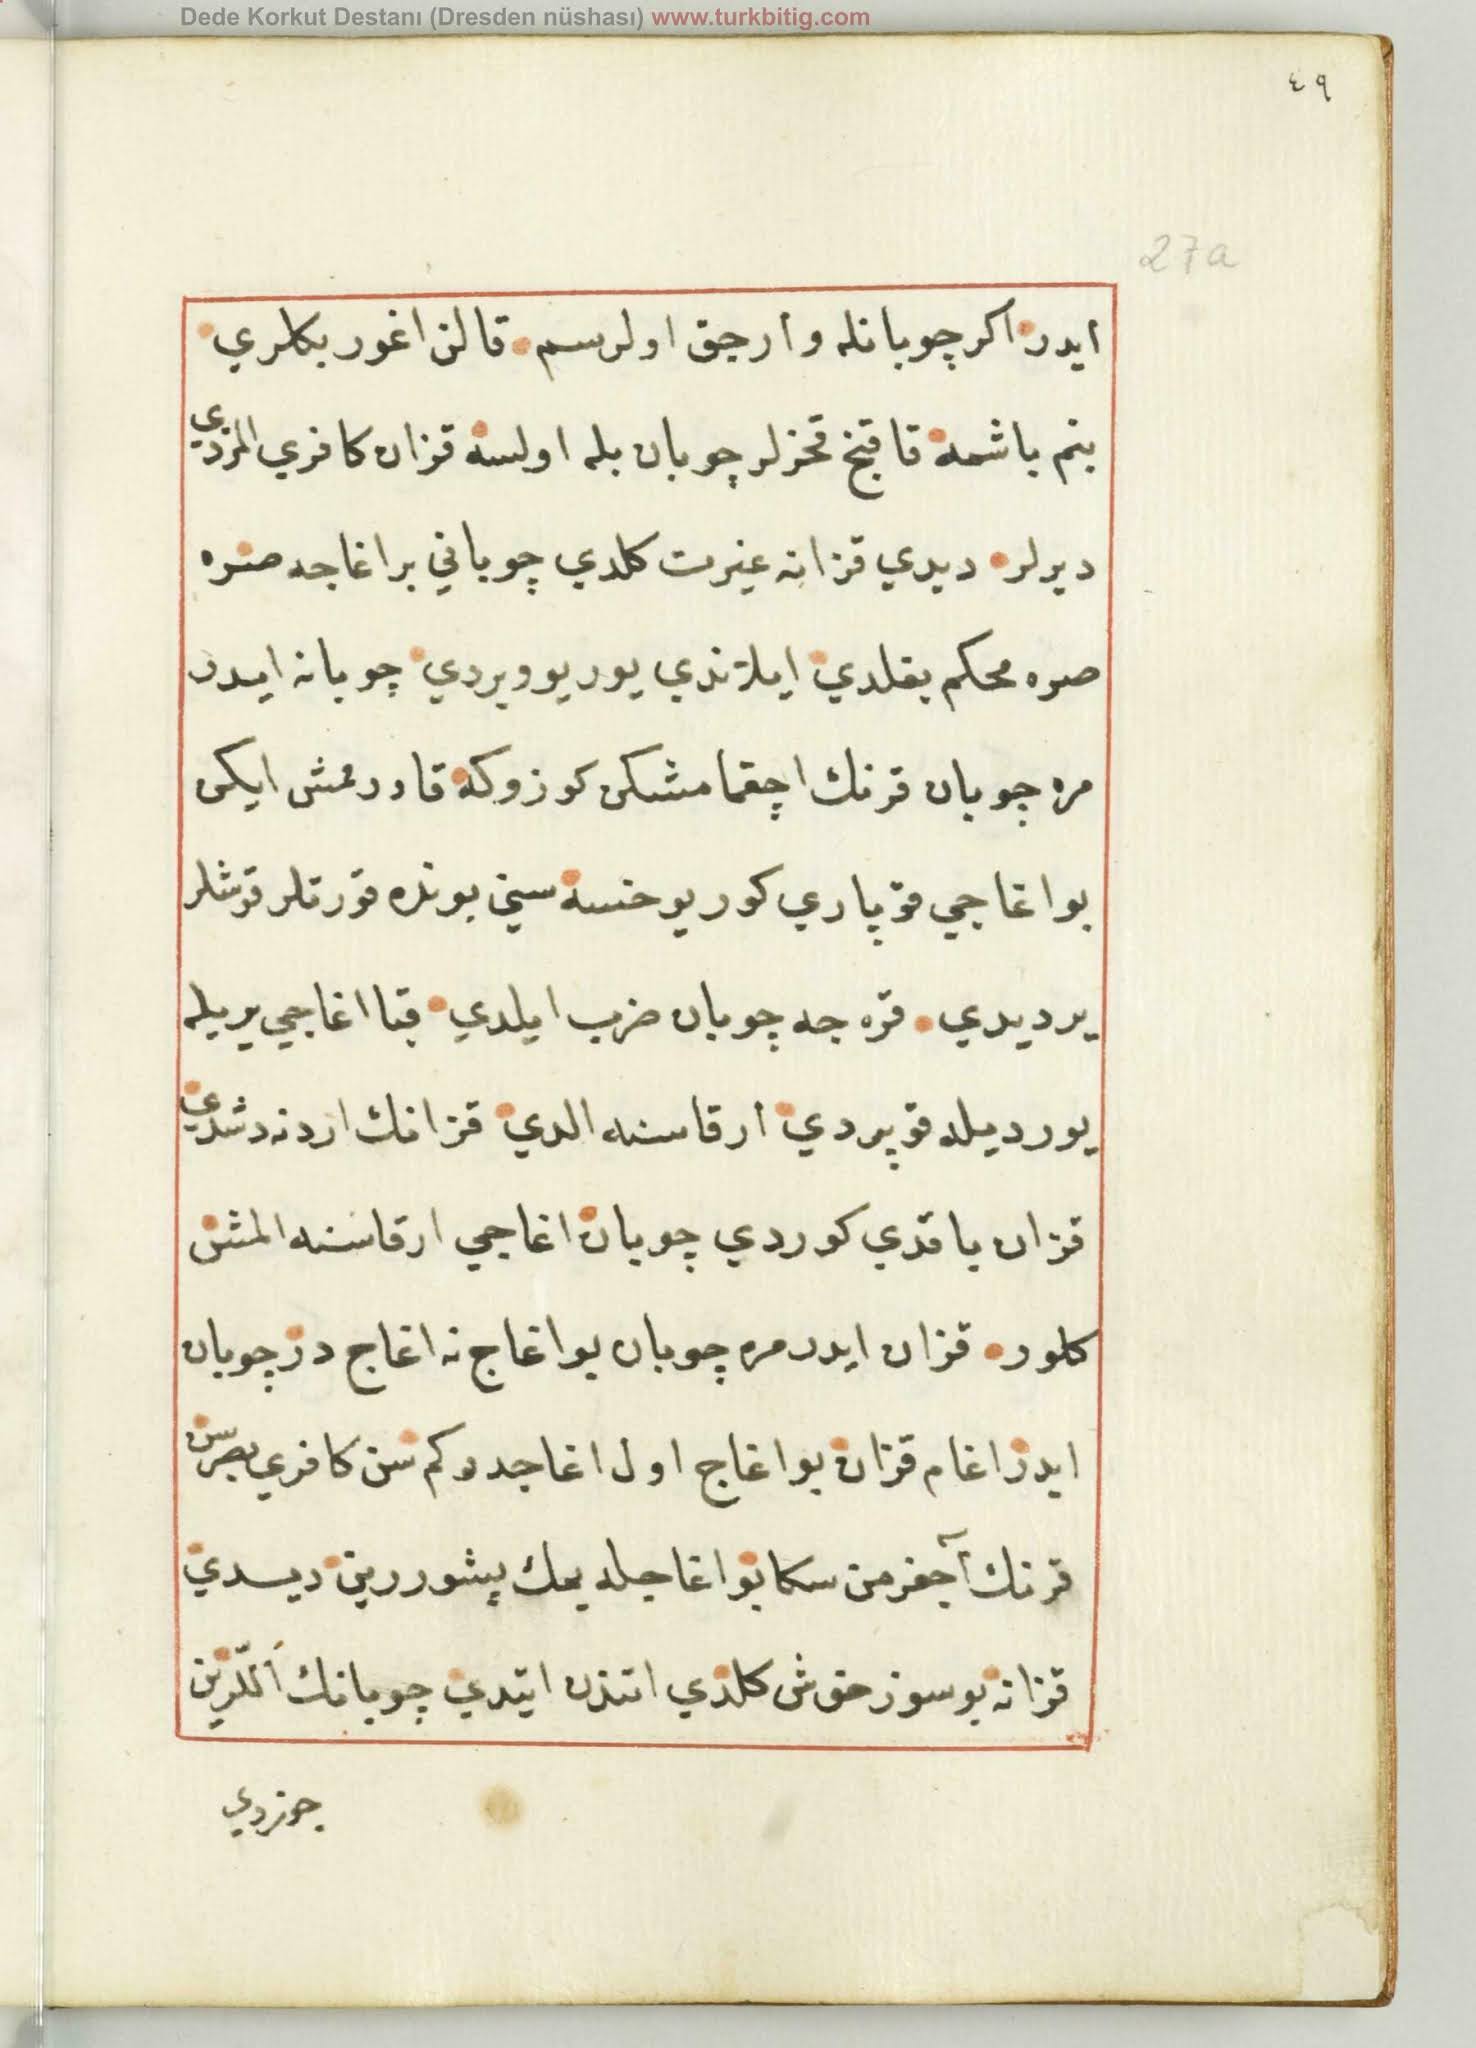 Dede Korkut Destanı (Dresden nüshası) www.turkbitig.com
٤٩
27a
ايدر اكر چوبانله وارجق اولرسم قالن اغوز بكلري
بنم باشمه قاقنج قخرلر چوبان بله اولسه قزان كافري المزدي
ديرلر ديدي قزانه غيرت كلدي چوباني براغاجه صره
صره محكم بغلدي ايلاندي يوريو ويردي چوبانه ايدر
مره چوبان قرنك اچقمامشكن كوزوكه قاورمش ايكن
بو اغاجي قوپاري كور يوخسه سني بونده قورتلر قوشلر
ير ديدي قره جه چوبان ضرب ايلدي قبا اغاجي يريله
يورديله قوپردي ارقاسنه الدي قزانك اردنه دشدي
قزان باقدي كوردي چوبان اغاجي ارقاسنه المش
كلور قزان ايدر مره چوبان بو اغاج نه اغاج در چوبان
ايدر اغام قزان بو اغاج اول اغاجدر كم سن كافري بصرسن
قرنك آجغر من سكا بو اغاجله يمك پيشوررين ديدي
قزانه بو سوز خوش كلدي اتندن ايتدي چوبانك اللرين
چوزدي